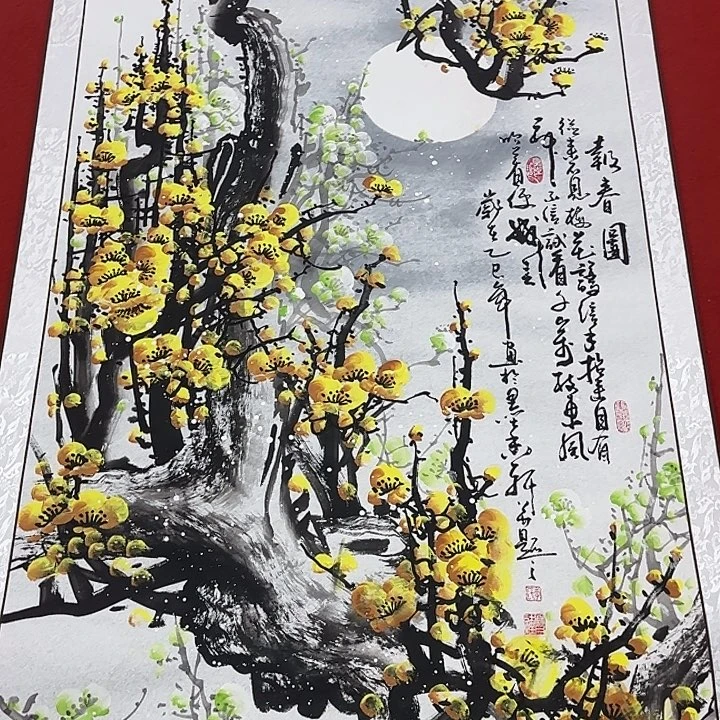 報春圖
從來不見梅花譜信手拈來自有
神不信試看千萬枝東風
吹着便成春
歲在乙巳年畫於墨軒並題之